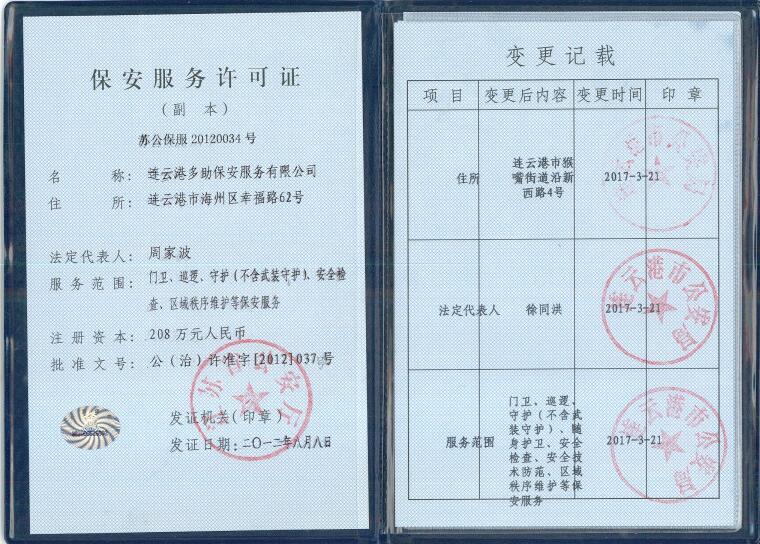 保安服务许可证
（副 本）
苏公保服 20120034 号
名 称：连云港多助保安服务有限公司
住 所：连云港市海州区幸福路62号
法定代表人：周家波
服务范围：门卫、巡逻、守护（不含武装守护）、安全检
查、区域秩序维护等保安服务
注册资本：208 万元人民币
批准文号：公（治）许准字[2012]037 号
发证机关（印章）
发证日期：二〇一二年八月八日
江苏省公安厅
变更记载
项 目 变更后内容 变更时间 印 章
住所 连云港市猴
嘴街道沿新
西路4号 2017-3-21
连云港市公安局
法定代表人 徐同洪 2017-3-21
连云港市公安局
服务范围 门卫、巡逻、
守护（不含武
装守护）、随
身护卫、安全
检查、安全技
术防范、区域
秩序维护等保
安服务 2017-3-21
连云港市公安局